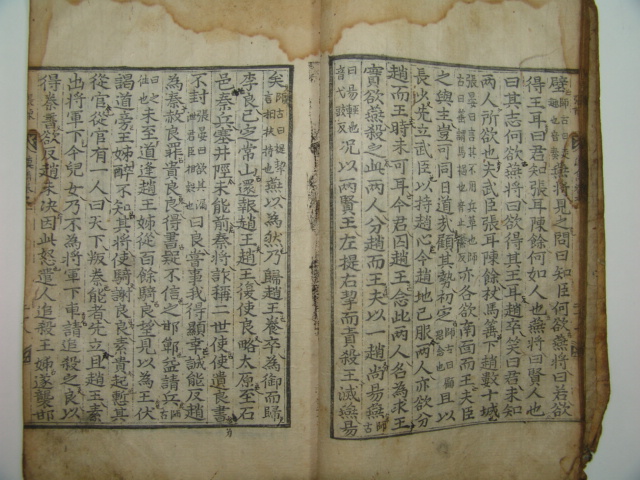 壁師古曰趣也音奏燕將見之問曰知臣何欲燕將曰若欲
得王耳曰君知張耳陳餘何如人也燕將曰賢人也
曰其志何欲燕將曰欲得其王耳趙卒笑曰君未知
兩人所欲也夫武臣張耳陳餘杖馬箠下趙數十城
張晏曰言其不用兵革也師古曰箠謂馬檛也音止橤反亦各欲南面而王夫臣
之與主豈可同日道哉顧其勢初定師古曰顧思念也且以
長少先立武臣以持趙心今趙地已服兩人亦欲分
趙而王時未可耳今君囚趙王念此兩人名為求王
實欲燕殺之此兩人分趙而王夫以一趙尚易燕師古
曰易輕也音弋豉反況以兩賢王左提右挈而責殺王滅燕易
矣師古曰提挈言相扶持也燕以為然乃歸趙王養卒為御而歸
李良已定常山還報趙王趙王復使良略太原至石
邑秦兵塞井陘未能前秦將詐稱二世使使遺良書
不封張晏曰欲其漏泄君臣相疑也曰良嘗事我得顯幸誠能反趙
為秦赦良罪貴良良得書疑不信之邯鄲益請兵師古
曰之往也未至道逢趙王姊從百餘騎良望見以為王伏
謁道旁王姊醉不知其將使騎謝良良素貴起慙其
從官從官有一人曰天下叛秦能者先立且趙王素
出將軍下今兒女乃不為將軍下車請追殺之良以
得秦書欲反趙未決因此怒遣人追殺王姊遂襲邯